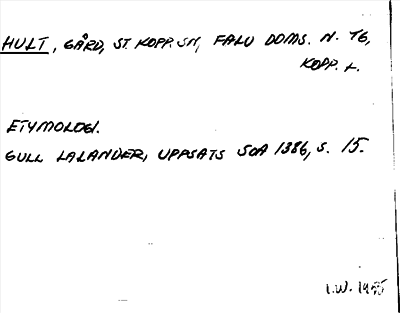 HULT, GÅRD, ST. KOPP. SN, FALU DOMS. N. TG,
KOPP. L.
ETYMOLOGI.
GULL LALANDER, UPPSATS SOA 1386, S. 15.
I.W. 1975